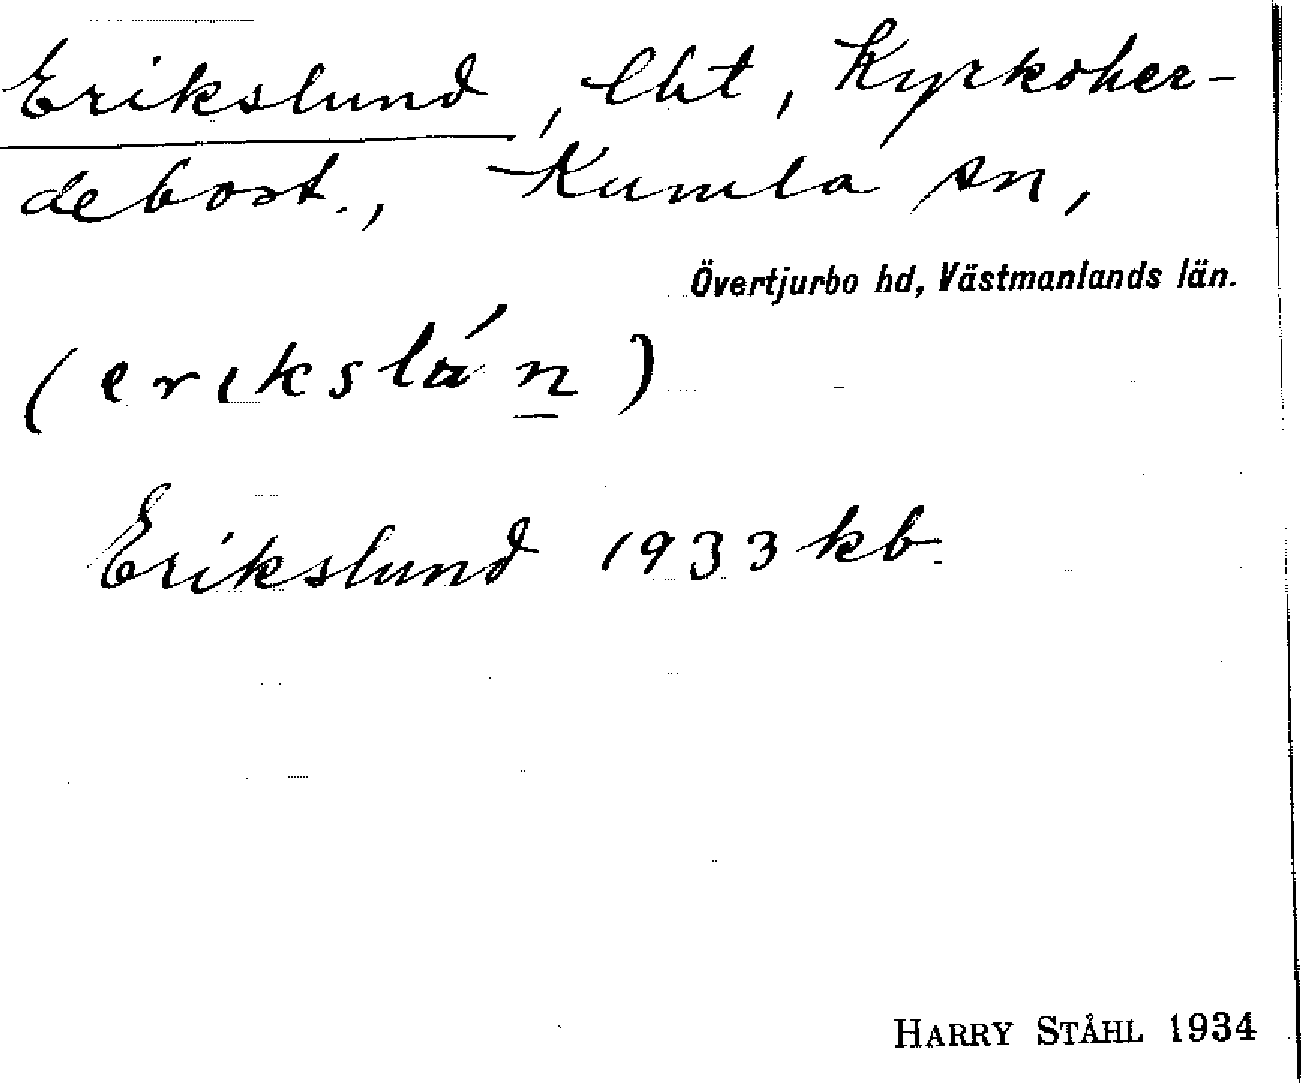 Erikslund, lht, Kyrkoher-
debost., Kumla sn,
Övertjurbo hd, Västmanlands län.
(erikslán)
Erikslund 1933 kb.
HARRY STÅHL 1934